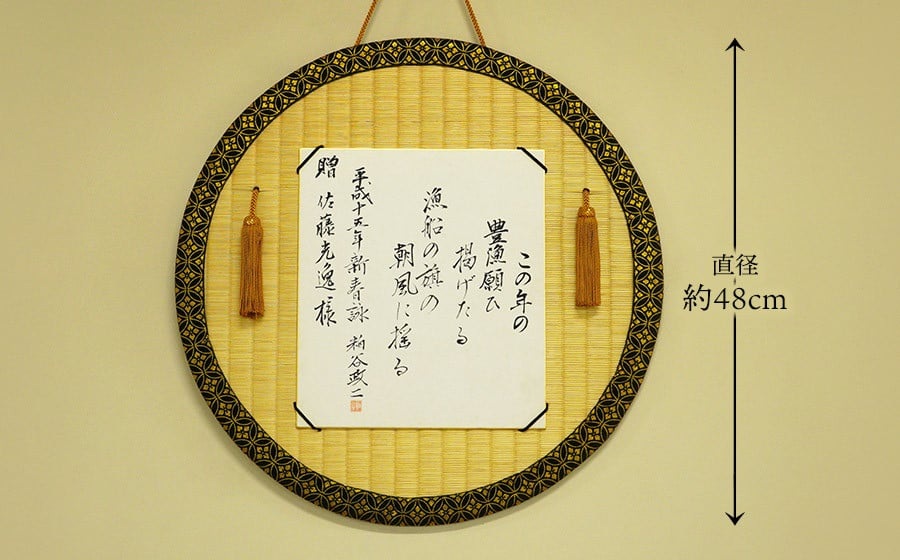 この年の
豊漁願ひ
掲げたる
漁船の旗の
朝風に揺る
平成十五年新春詠 粕谷政二
贈 佐藤光逸様
直径
約48cm